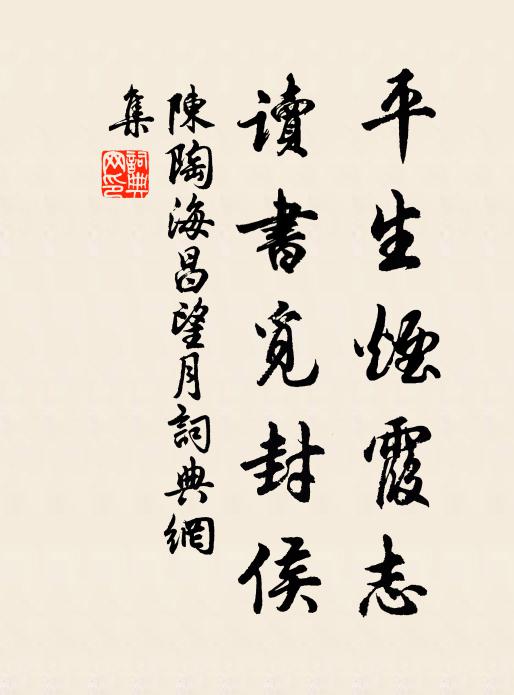 平生煙霞志
讀書覓封侯
陳陶海昌望月詞典網
集
詞典
网印